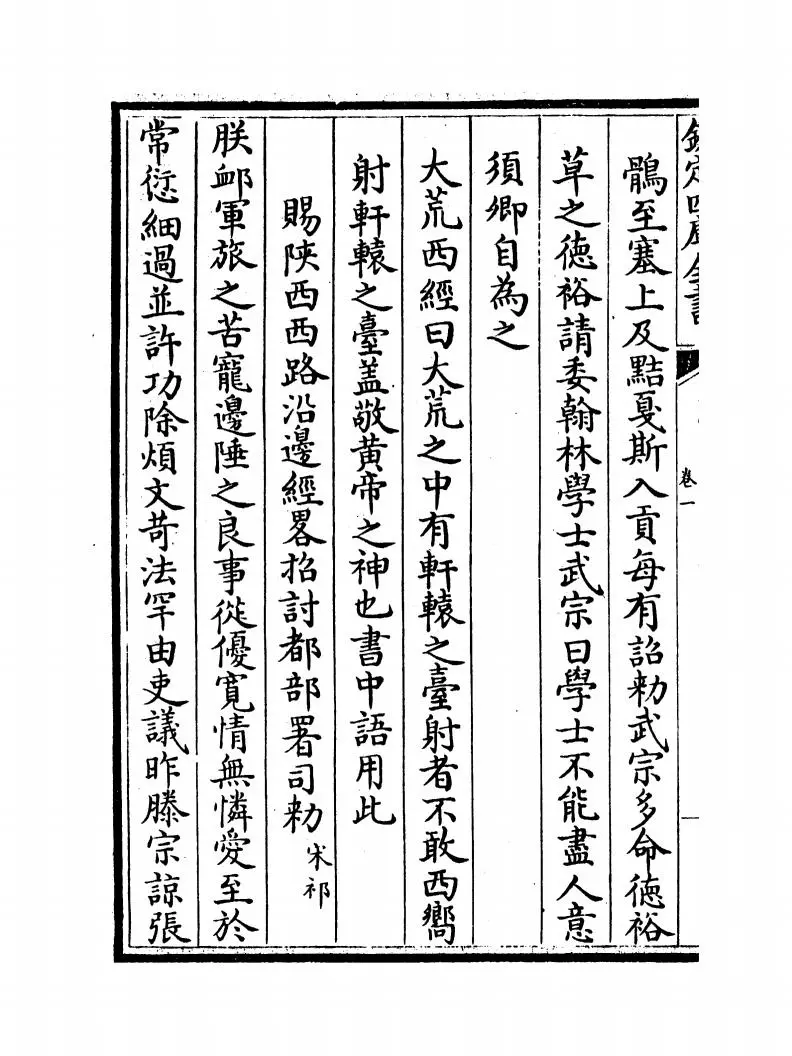 欽定四庫全書
卷一
鶻至塞上及㸃戛斯入貢每有詔勑武宗多命徳裕
草之徳裕請委翰林學士武宗曰學士不能盡人意
須卿自為之
大荒西經曰大荒之中有軒轅之臺射者不敢西嚮
射軒轅之臺盖敬黄帝之神也書中語用此
賜陜西西路沿邊經畧招討都部署司勑 宋祁
朕衈軍旅之苦寵邊陲之良事從優寛情無憐愛至於
常愆細過並許功除煩文苛法罕由吏議昨滕宗諒張